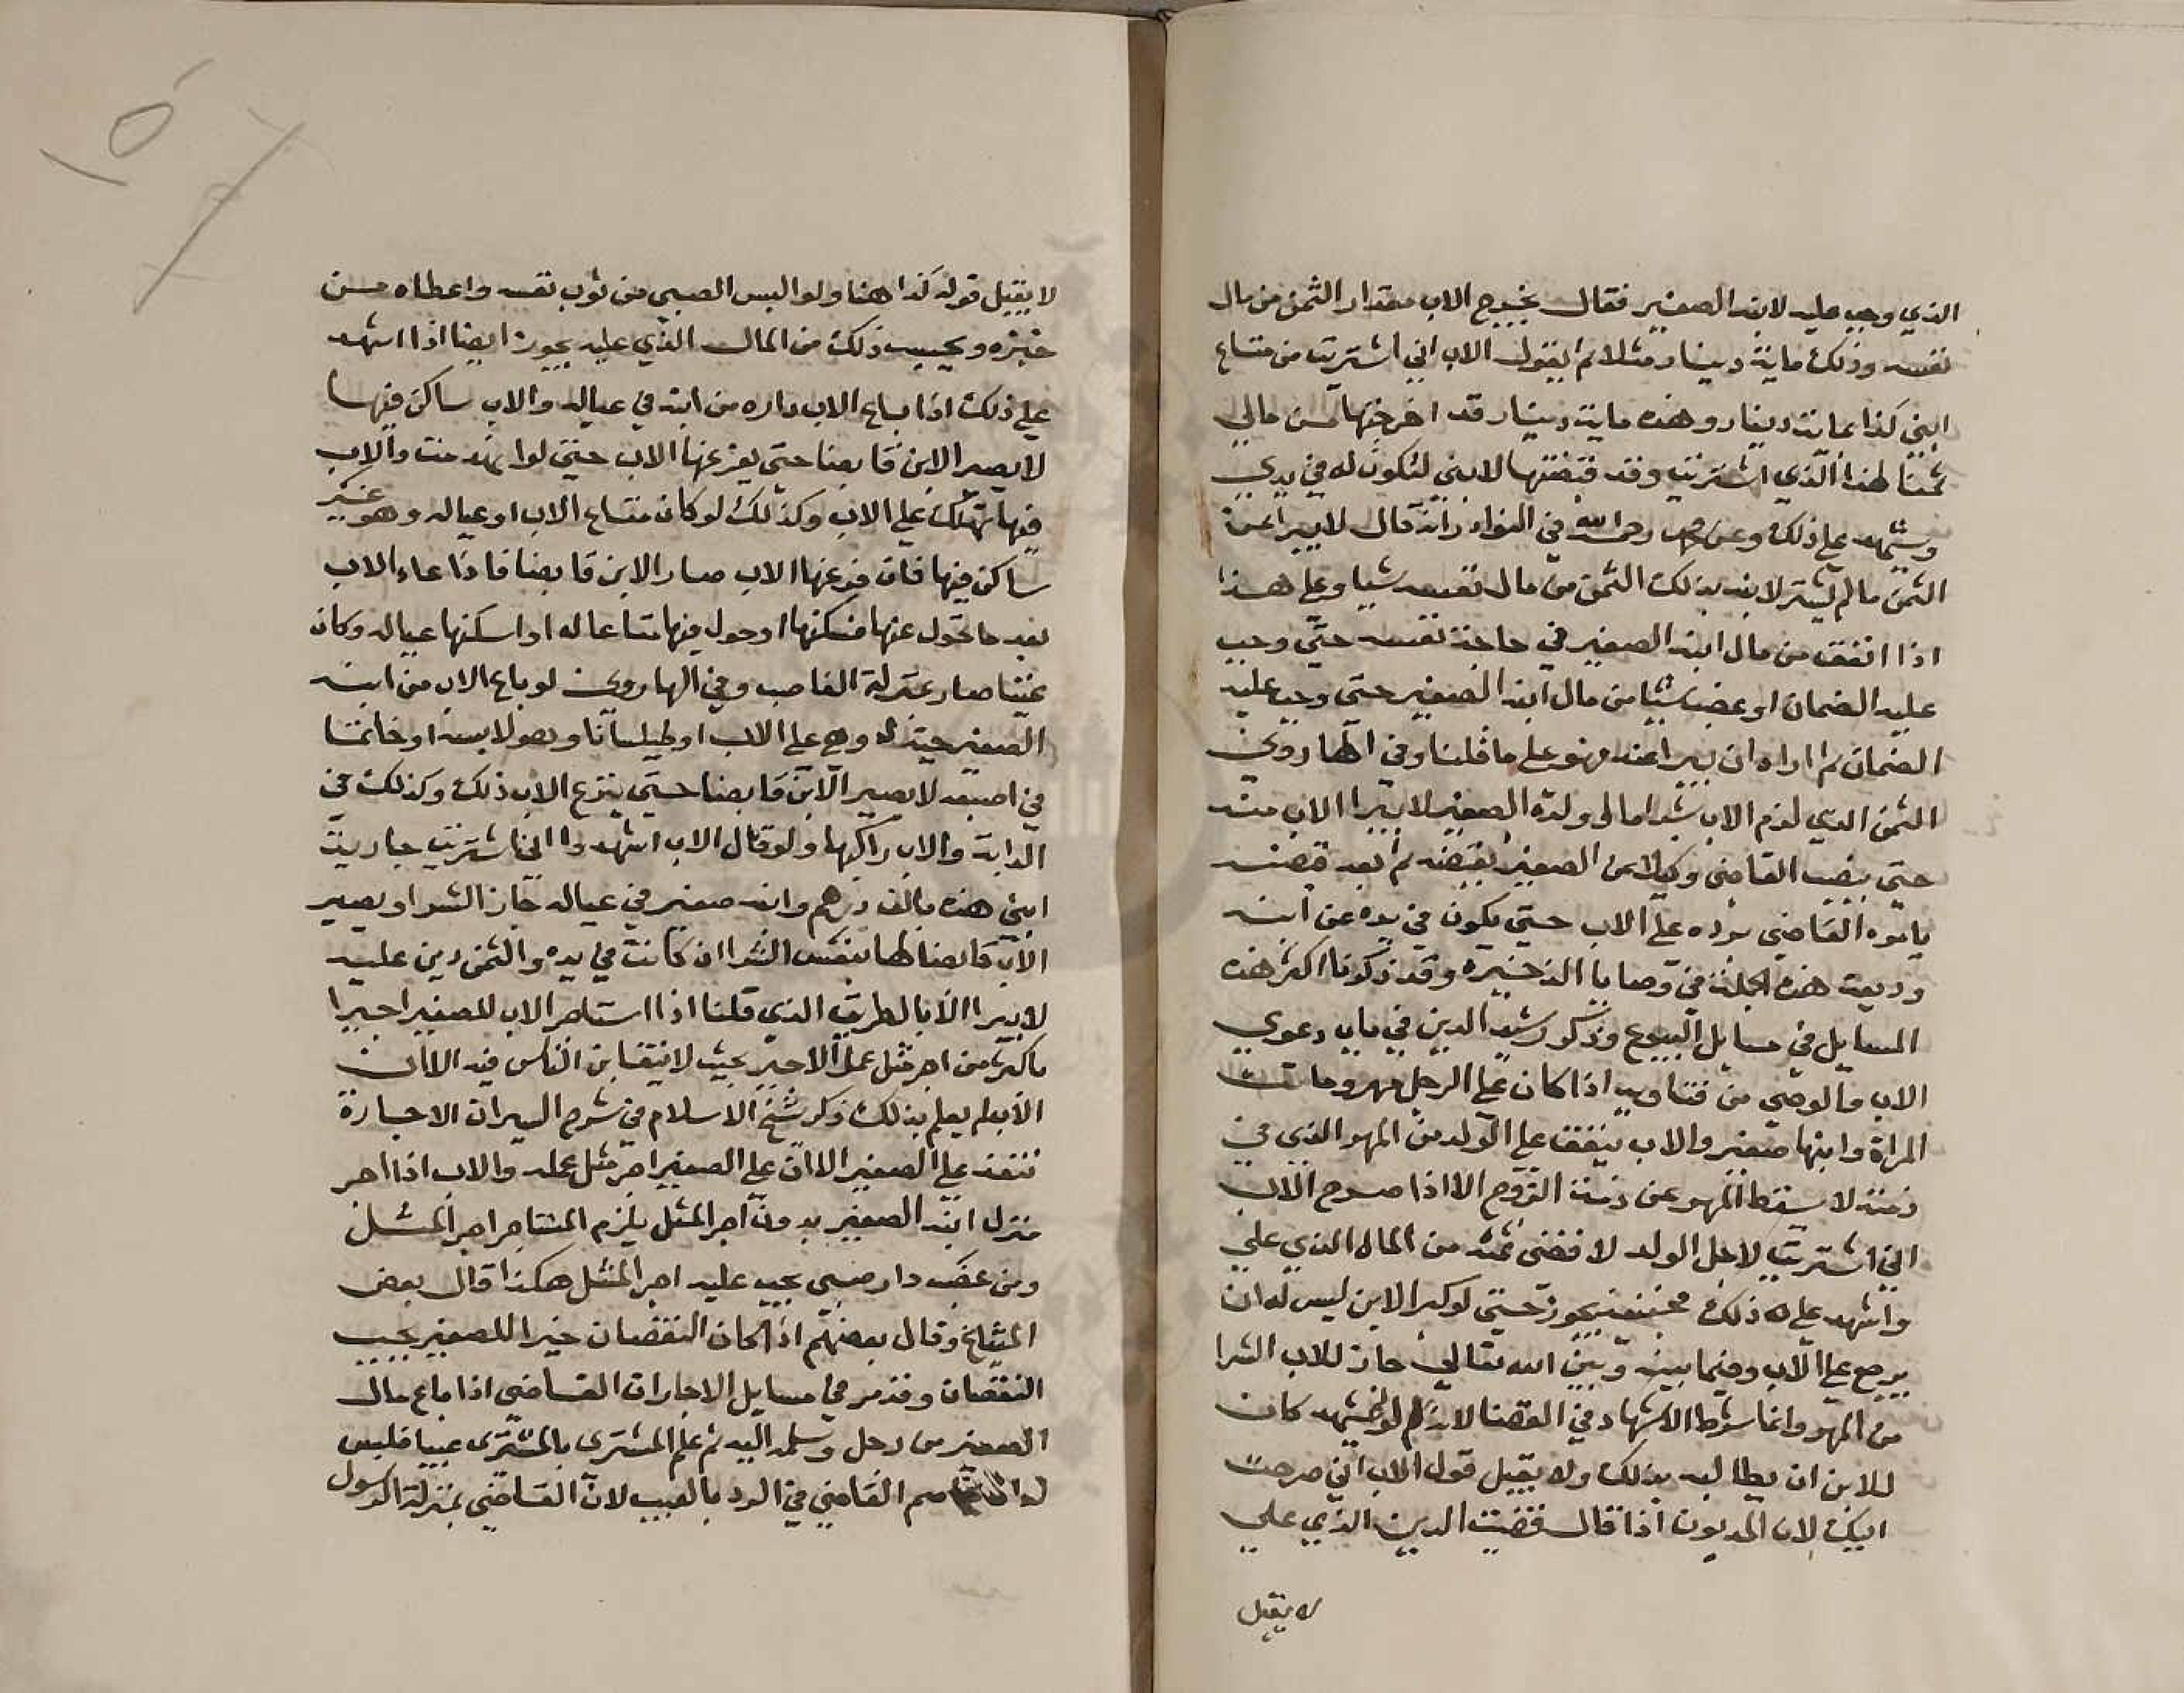 الذي وجب عليه لابنه الصغير فقال يخرج الاب مقدار الثمن من مال
نفسه وذلك ماية دينار مثلا ثم يقول الاب اني اشتريت من متاع
ابني كذا بماية دينار وهذه ماية دينار قد اخرجتها من مالي
ثمنا لهذا الذي اشتريت وقد قبضتها لابني لتكون له في يدي
ويشهد على ذلك وعن محمد رحمه الله في النوادر انه قال لا يبرا عن
الثمن ما لم يشتر لابنه بذلك الثمن من مال نفسه شيا وعلى هذا
اذا انفق من مال ابنه الصغير في حاجة نفسه حتى وجب
عليه الضمان او غصب شيا من مال ابنه الصغير حتى وجب عليه
الضمان ثم اراد ان يبرا عنه فهو على ما قلنا وفي الهاروني
الثمن الذي لزم الاب بشرا مال ولده الصغير لا يبرا الاب منه
حتى ينصب القاضي وكيلا عن الصغير يقبضه ثم بعد قبضه
يامره القاضي برده على الاب حتى يكون في يده عن ابنه
وديعة هذه الجملة في وصايا الذخيرة وقد ذكرنا اكثر هذه
المسايل في مسايل البيوع وذكر رشيد الدين في باب دعوي
الاب والوصي من فتاويه اذا كان على الرجل مهر وماتت
المراة وابنها صغير والاب ينفق على الولد من المهر الذي في
ذمته لا يسقط المهر عن ذمة الزوج الا اذا صرح الاب
اني اشتريت لاجل الولد لاقضي ثمنه من المال الذي علي
واشهد على ذلك فحينئذ يجوز حتى لو كبر الابن ليس له ان
يرجع على الاب وفيما بينه وبين الله تعالى جاز للاب الشرا
من المهر وانما شرط الاشهاد في القضا لانه لو لم يشهد كان
للابن ان يطالبه بذلك ولا يقبل قول الاب اني صرحت
اليك لان المديون اذا قال قضيت الدين الذي علي
لا يقبل
لا يقبل قوله كذا هنا ولو البس الصبي من ثوب نفسه واعطاه من
خبزه ويحسب ذلك من المال الذي عليه يجوز ايضا اذا اشهد
على ذلك اذا باع الاب داره من ابنه في عياله والاب ساكن فيها
لا يصير الابن قابضا حتى يفرغها الاب حتى لو انهدمت والاب
فيها تهلك على الاب وكذلك لو كان متاع الاب او عياله وهو غير
ساكن فيها فان فرغها الاب صار الابن قابضا فاذا عاد الاب
بعد ما تحول عنها فسكنها او حول فيها متاعا له او اسكنها عياله وكان
غنيا صار بمنزلة الغاصب وفي الهاروني لو باع الاب من ابنه
الصغير جبة وهي على الاب او طيلسانا وهو لابسه او خاتما
في اصبعه لا يصير الابن قابضا حتى ينزع الاب ذلك وكذلك في
الدابة والاب راكبها ولو قال الاب اشهدوا اني اشتريت جارية
ابني هذه بالف درهم وابنه صغير في عياله جاز الشرا ويصير
الاب قابضا لها بنفس الشرا ان كانت في يده والثمن دين عليه
لا يبرا الا بالطريق الذي قلنا اذا استاجر الاب للصغير اجيرا
باكثر من اجر مثل عمل الاجير بحيث لا يتغابن الناس فيه الا ان
الاب لم يعلم بذلك ذكر شيخ الاسلام في شرح السير ان الاجارة
تنفذ على الصغير الا ان على الصغير اجر مثل عمله والاب اذا اجر
منزل ابنه الصغير بدون اجر المثل يلزم المستاجر اجر المثل
ومن غصب دار صبي يجب عليه اجر المثل هكذا قال بعض
المشايخ وقال بعضهم اذا كان النقصان خيرا للصغير يجب
النقصان وقد مر في مسايل الاجارات القاضي اذا باع مال
الصغير من رجل وسلمه اليه ثم علم المشتري بالمشترى عيبا فليس
له ان يخاصم القاضي في الرد بالعيب لان القاضي بمنزلة الرسول